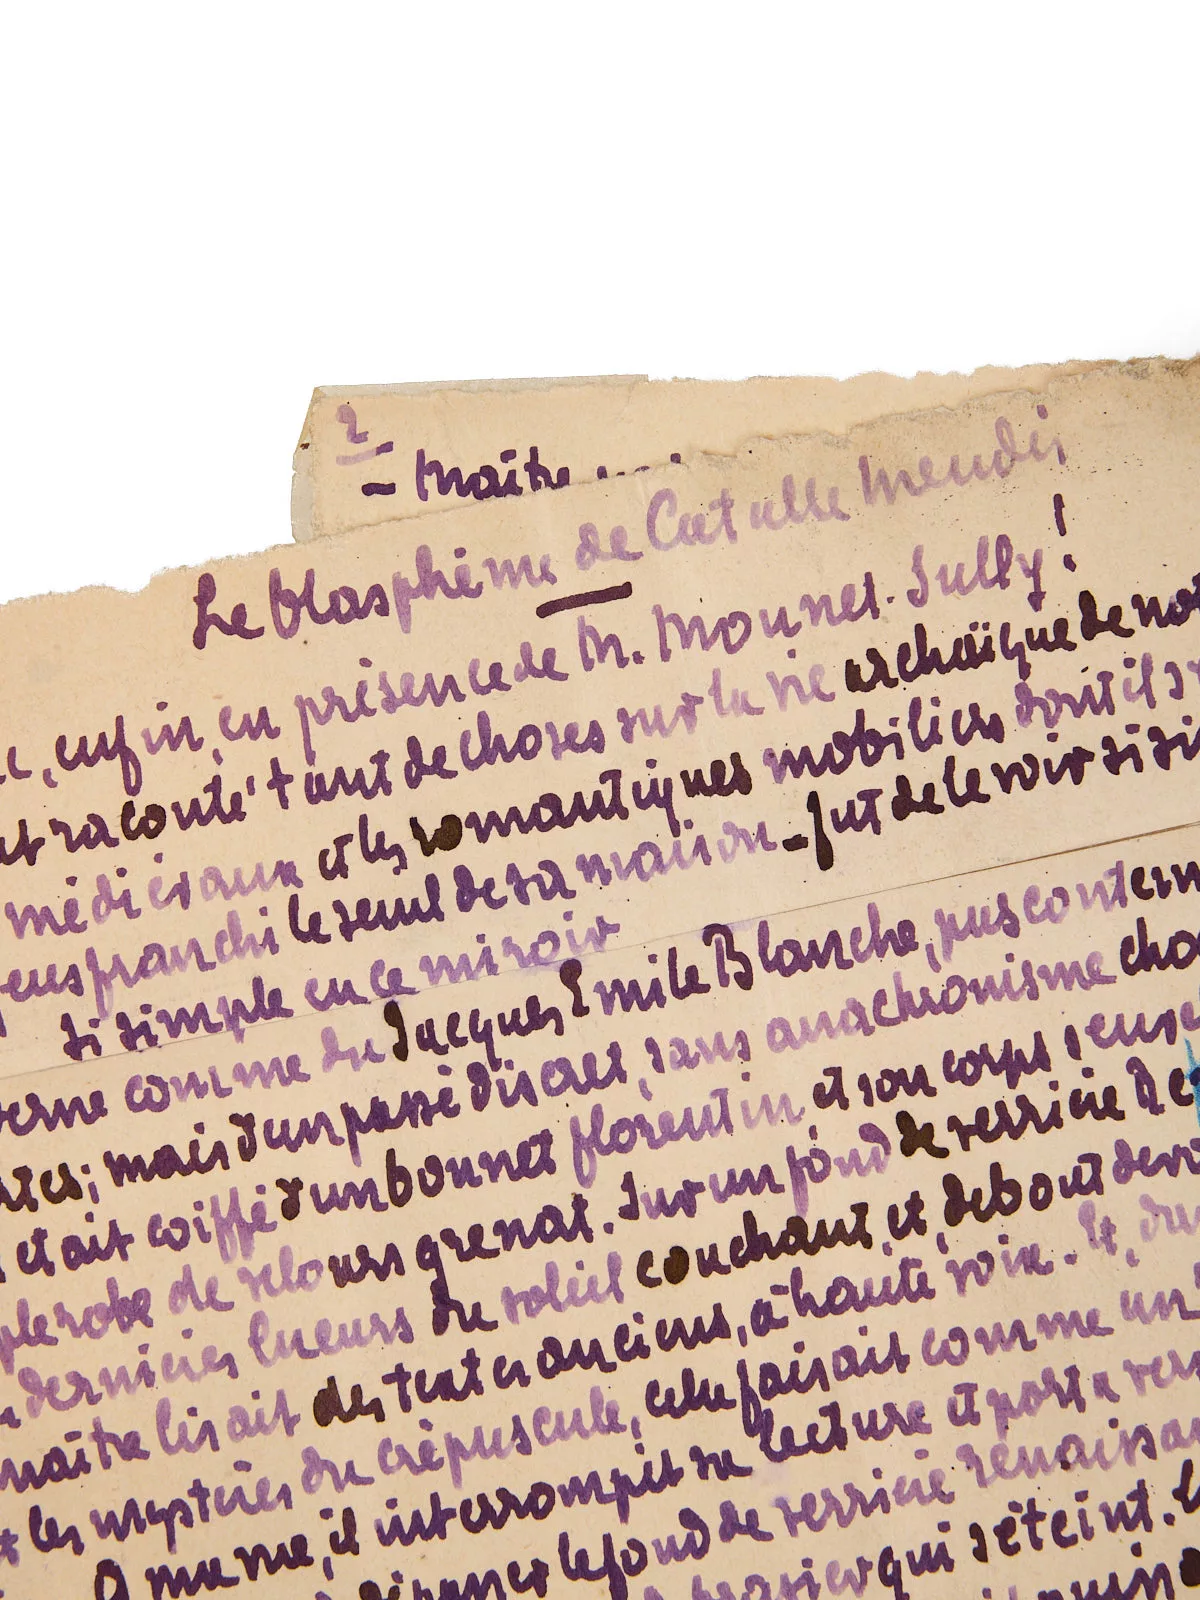 2
- Maître
Le blasphème de Catulle Mendès
enfin, en présence de M. Mounet-Sully!
raconté tant de choses sur la vie archaïque de
médiévaux et les romantiques mobiliers dont il
eus franchi le seuil de sa maison - fut de le voir si si
si simple en ce miroir
comme du Jacques Emile Blanche, pus
mais d'un passé discret, sans anachronisme
était coiffé d'un bonnet florentin et son corps
robe de velours grenat. Sur un fond de verrière
dernières lueurs du soleil couchant, et, debout
lisait des textes anciens, à haute voix. Et,
les mystères du crépuscule, cela faisait comme un
il interrompit sa lecture et porta
le fond de verrière
brasier qui s'éteint.